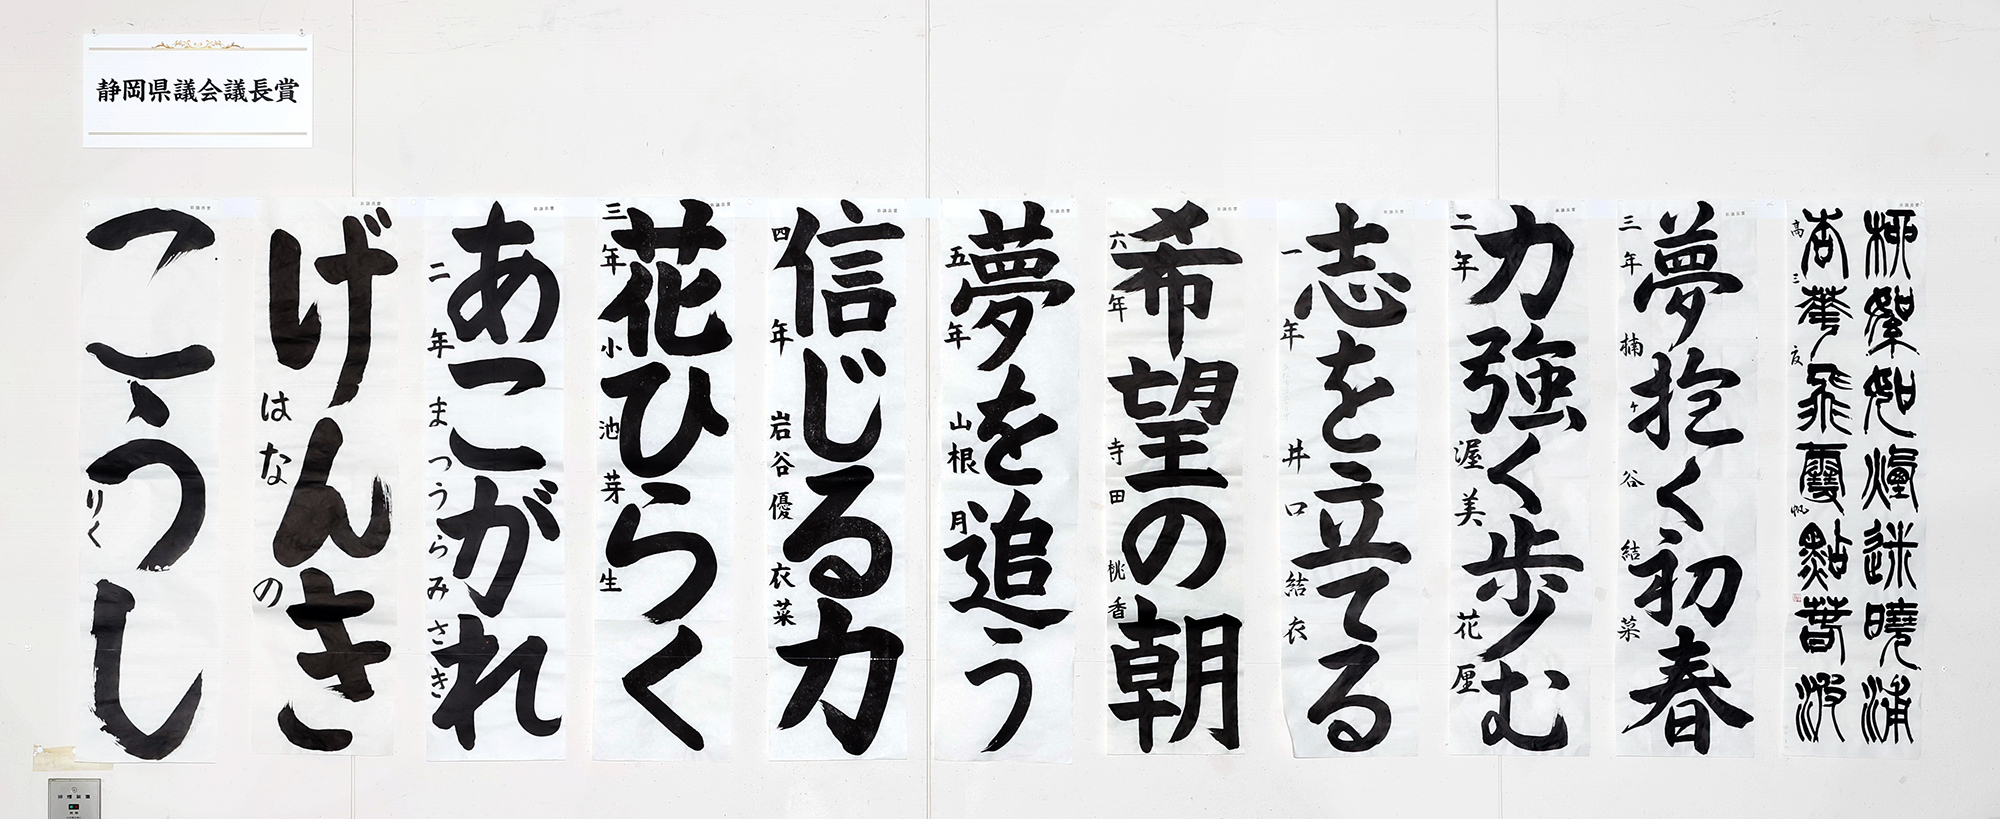 静岡県議会議長賞
柳絮如煙迷曉浦
杏華飛雪點春波
高三 友帆
夢抱く初春
三年 楠ヶ谷結菜
力強く歩む
二年 渥美花厘
志を立てる
一年 井口結衣
希望の朝
六年 寺田桃香
夢を追う
五年 山根月
信じる力
四年 岩谷優衣菜
花ひらく
三年 小池芽生
あこがれ
二年 まつうらみさき
げんき
はなの
こうし
りく